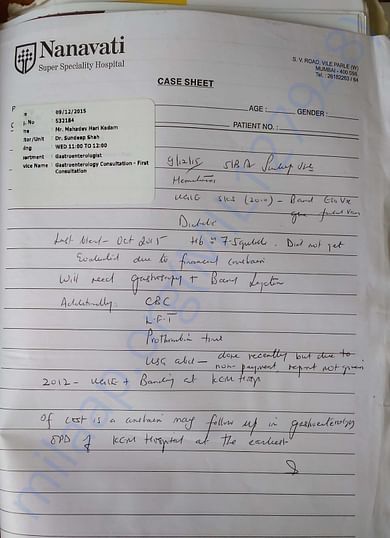 Nanavati
Super Speciality Hospital
S. V. ROAD, VILE PARLE (W)
MUMBAI - 400 056.
Tel. : 26182263 / 64
CASE SHEET
AGE : GENDER :
PATIENT NO. :
: 09/12/2015
No : 532184
me : Mr. Mahadev Hari Kadam
tor/Unit : Dr. Sundeep Shah
ing : WED 11:00 TO 12:00
artment : Gastroenterologist
vice Name : Gastroenterology Consultation - First
Consultation
9/12/15 S/B Dr
Hematemesis
UGIE (2010) - Band
Diabetic
Last bleed - Oct 2015 Hb 7.5 gm Did not get
Evaluated due to financial constrain
Will need gastroscopy + Band Ligation
Additionally CBC
LFT
Prothrombin time
USG abd - done recently but due to
non payment report not given
2012 - UGIE + Banding at KEM Hosp
If cost is a constrain may follow up in gastroenterology
OPD of KEM Hospital at the earliest
milaap.org